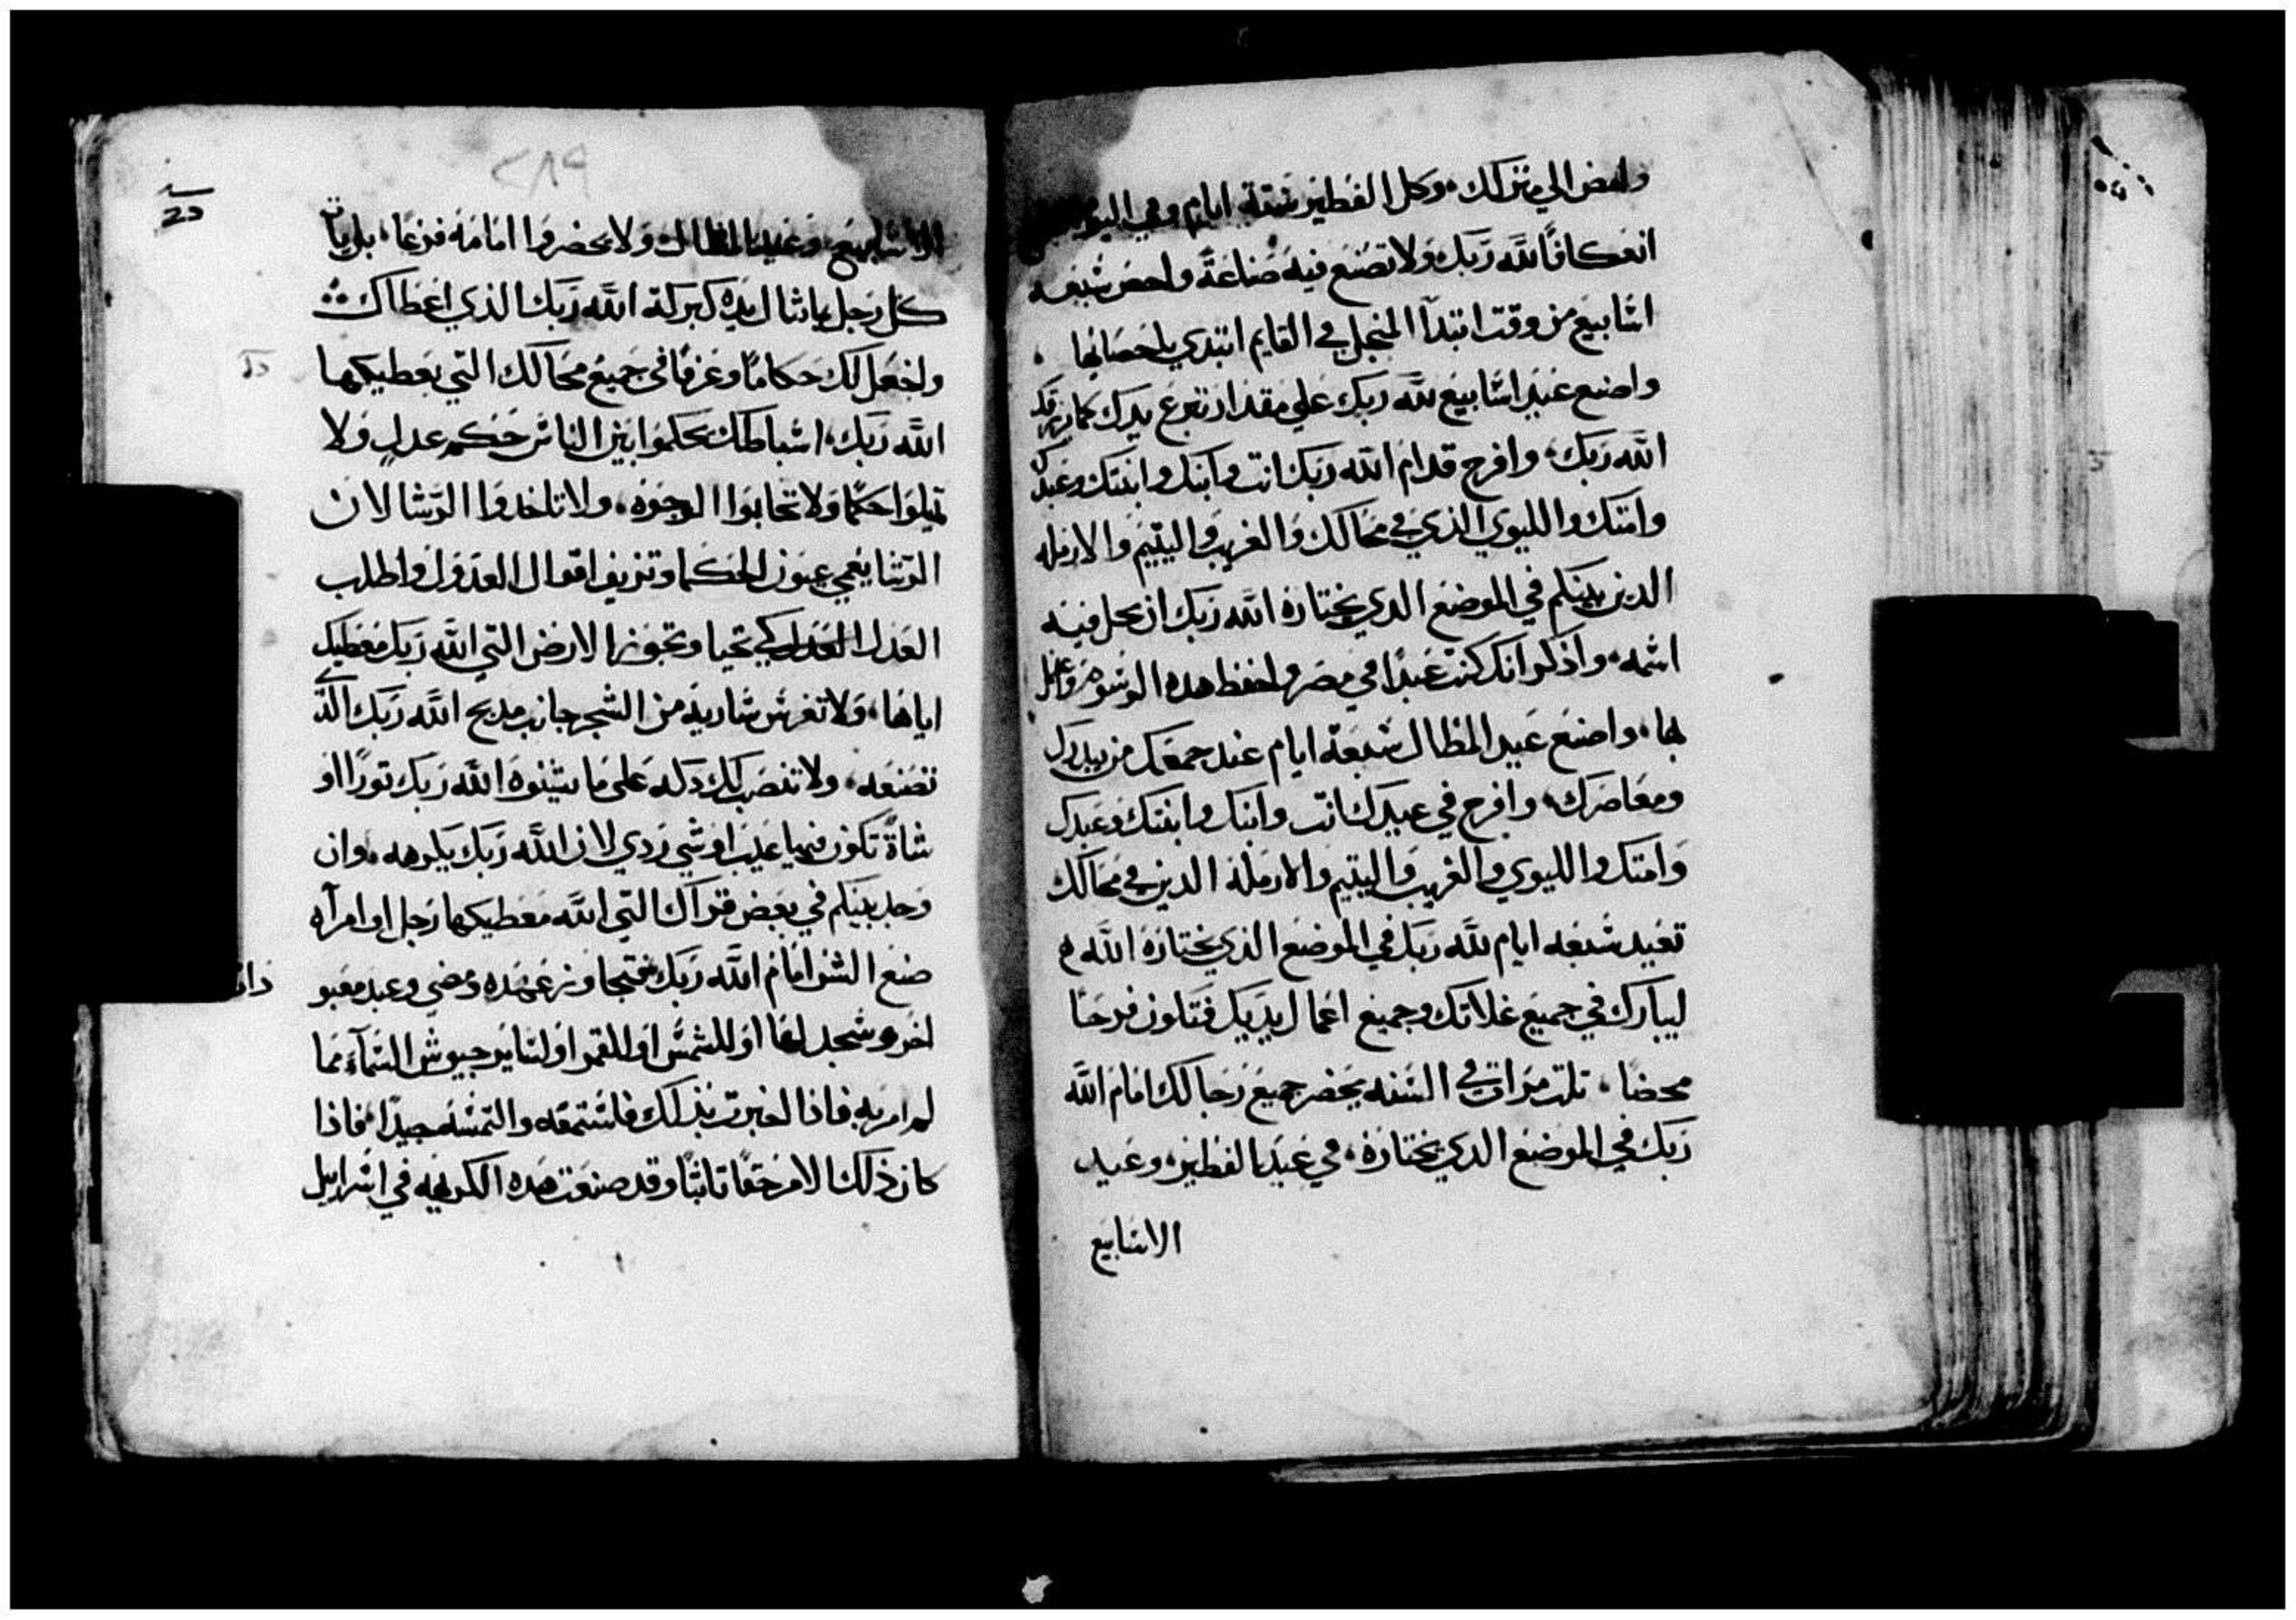 وامض الي منزلك، وكل الفطير ستة ايام وفي اليوم
انعكافًا لله ربك ولا تصنع فيه صناعة واحص سبعه
اسابيع من وقت ابتدآ المنجل في القايم ابتدي باحصايها
واصنع عيد اسابيع لله ربك علي مقدار تبرع يدك كما يرزقك
الله ربك، وافرح قدام الله ربك انت وابنك وابنتك وعبدك
وامتك والليوي الذي في محالك والغريب واليتيم والارمله
الدين بينكم في الموضع الدي يختاره الله ربك ان يحل فيه
اسمه، واذكر انك كنت عبدًا في مصر واحفظ هده الرسوم واعمل
بها، واصنع عيد المظال سبعة ايام عند جمعك من بيدرك
ومعاصرك، وافرح في عيدك انت وابنك وابنتك وعبدك
وامتك والليوي والغريب واليتيم والارملة الدين في محالك
تعيد سبعه ايام لله ربك في الموضع الذي يختاره الله
ليبارك في جميع غلاتك وجميع اعمال يديك فتكون فرحًا
محضًا، تلت مرات في السنه يحضر جميع رجالك امام الله
ربك في الموضع الدي يختاره، في عيد الفطير، وعيد
الاسابيع
٢٨٩
الاسابيع وعيد المظال ولا يحضروا امامه فرغا، بل يات
كل رجل باشال يده كبركة الله ربك الذي اعطاك
واجعل لك حكامًا وعرفًا في جميع محالك التي يعطيكها
الله ربك، اسباطك يحكموا بين الناس حكم عدل ولا
تميلوا حكمًا ولا تحابوا الوجوه، ولا تاخدوا الرشا لان
الرشا يعمي عيون الحكما وتزيف اقوال العدول واطلب
العدل العدل كي تحيا وتجوز الارض التي الله ربك معطيك
اياها، ولا تغرس سارية من الشجر جانب مدبح الله ربك الدي
تصنعه، ولا تنصب لك دكه علي ما يشنوه الله ربك تورًا او
شاة تكون فيها عيب او شي ردي لان الله ربك يكرهه، وان
وجد بينكم في بعض قراك التي الله معطيكها رجل او امرآه
صنع الشر امام الله ربك فتجاوز عهده ومضي وعبد معبو
اخر وسجد لها او للشمس او للقمر او لساير جيوش السمآء مما
لم امر به فاذا اخبرت بذلك فاستمعه والتمسه جيدًا، فاذا
كان ذلك الامر حقًا تابتًا وقد صنعت هده الكريهه في اسراييل